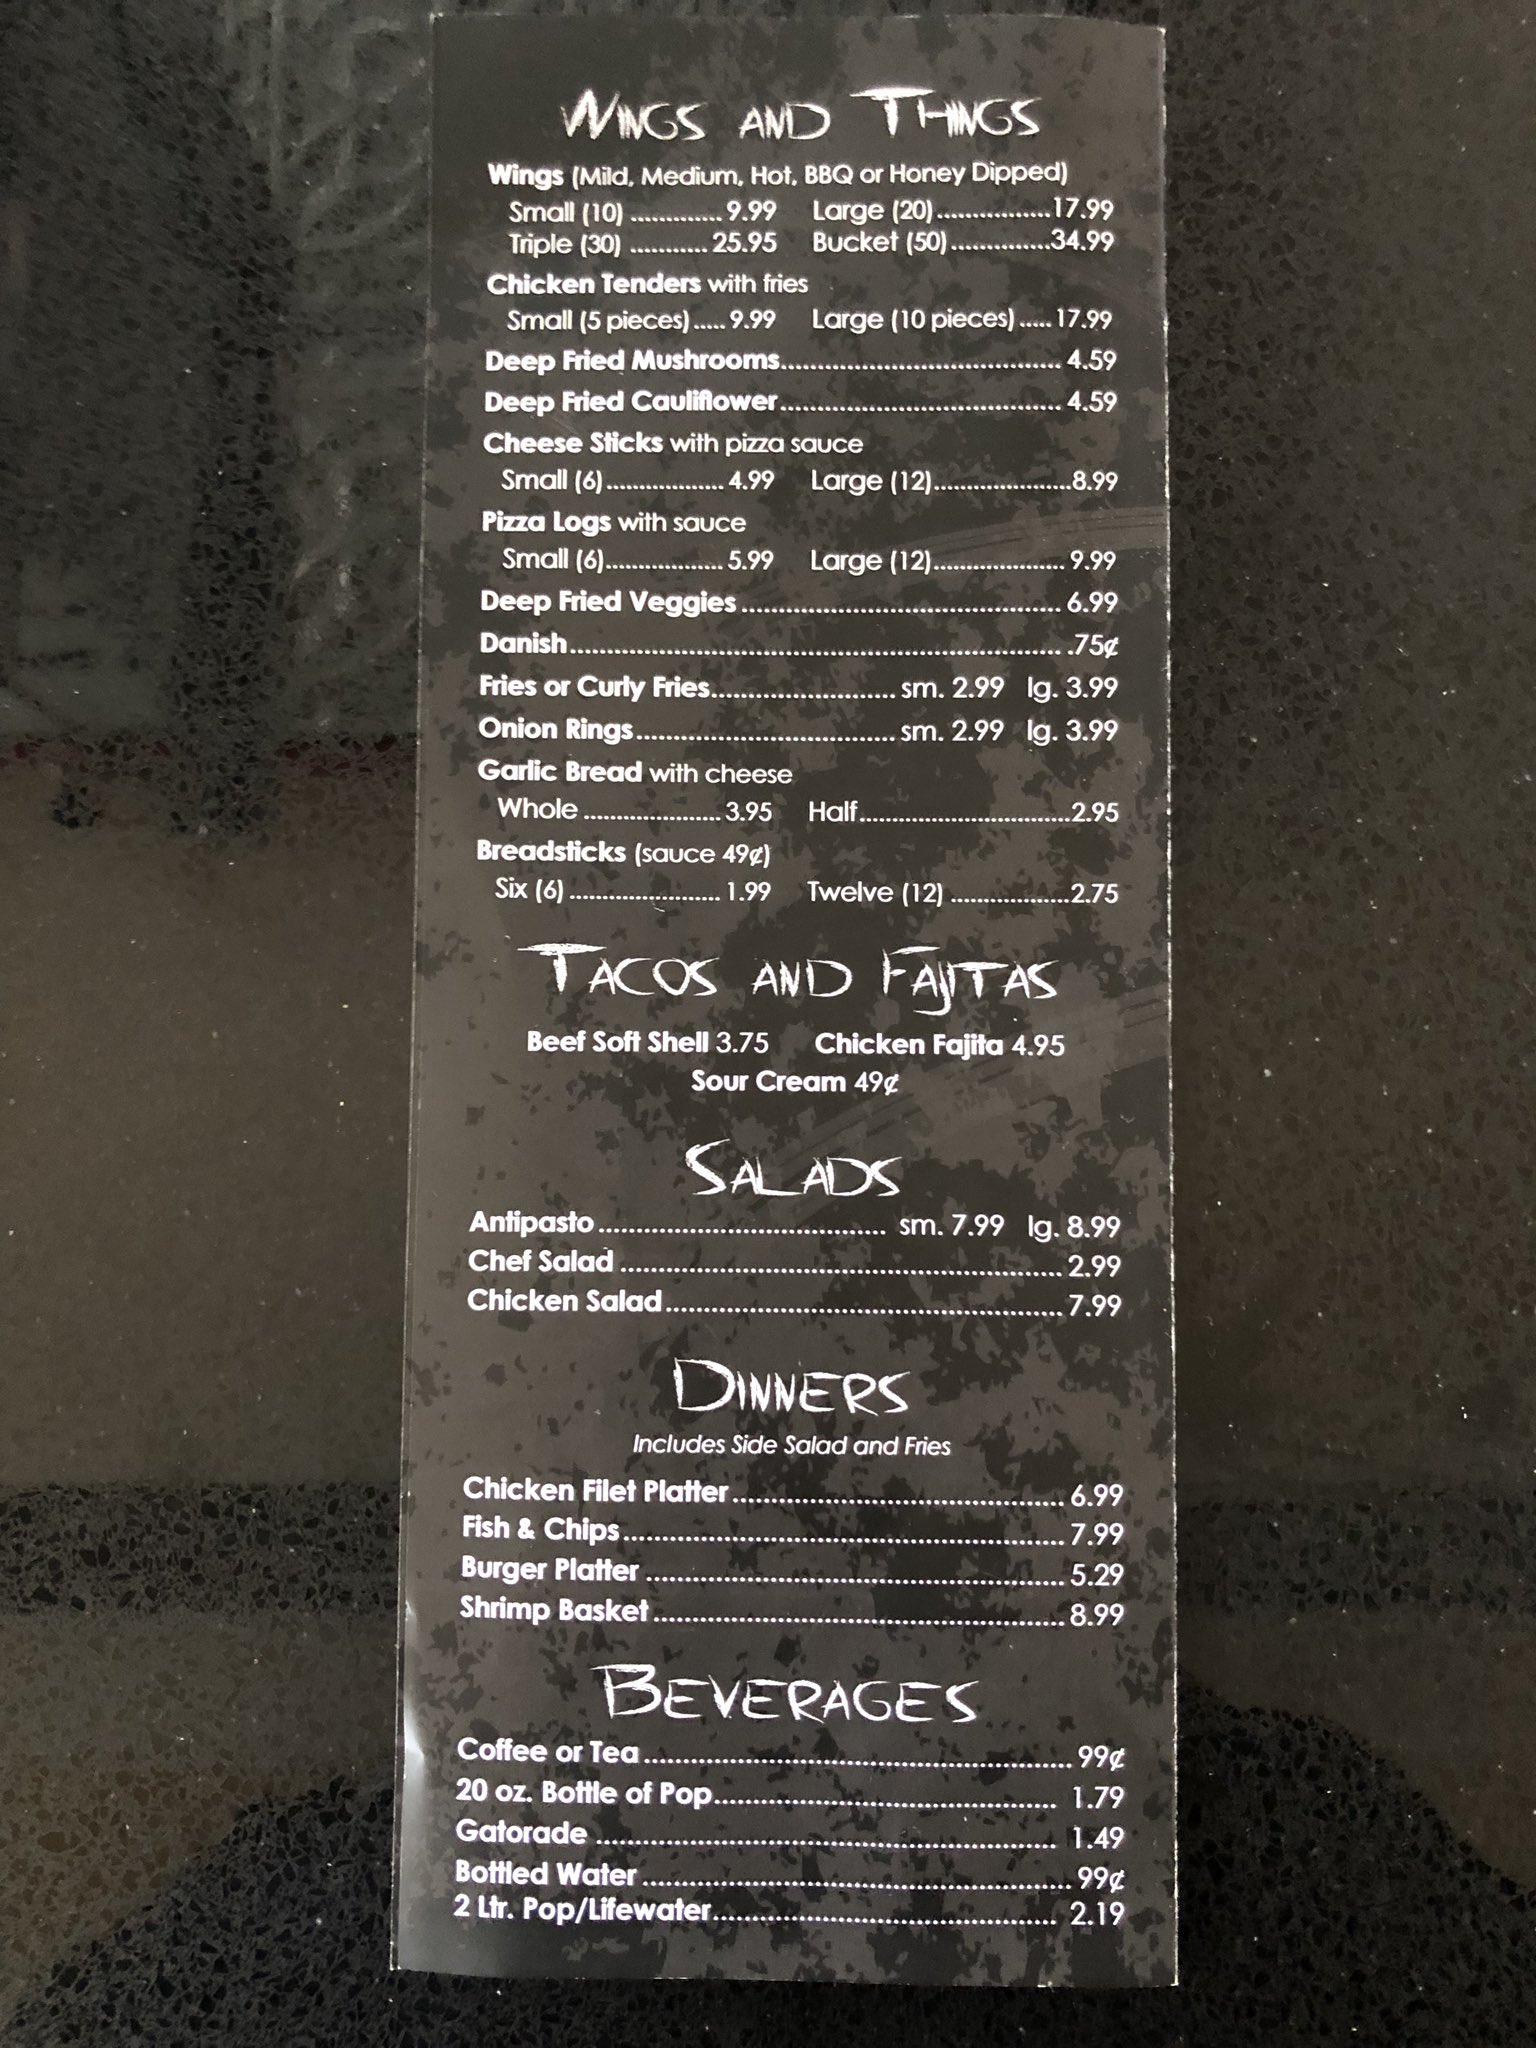 WINGS AND THINGS
Wings (Mild, Medium, Hot, BBQ or Honey Dipped)
Small (10) .............. 9.99 Large (20)..................17.99
Triple (30) ............ 25.95 Bucket (50)................34.99
Chicken Tenders with fries
Small (5 pieces)..... 9.99 Large (10 pieces)..... 17.99
Deep Fried Mushrooms...................................... 4.59
Deep Fried Cauliflower....................................... 4.59
Cheese Sticks with pizza sauce
Small (6)................... 4.99 Large (12)......................8.99
Pizza Logs with sauce
Small (6)................... 5.99 Large (12)..................... 9.99
Deep Fried Veggies........................................... 6.99
Danish.................................................................. .75¢
Fries or Curly Fries......................... sm. 2.99 lg. 3.99
Onion Rings................................... sm. 2.99 lg. 3.99
Garlic Bread with cheese
Whole ...................... 3.95 Half..................................2.95
Breadsticks (sauce 49¢)
Six (6) ........................ 1.99 Twelve (12) ...................2.75
TACOS AND FAJITAS
Beef Soft Shell 3.75 Chicken Fajita 4.95
Sour Cream 49¢
SALADS
Antipasto....................................... sm. 7.99 lg. 8.99
Chef Salad ........................................................... 2.99
Chicken Salad..................................................... 7.99
DINNERS
Includes Side Salad and Fries
Chicken Filet Platter............................................ 6.99
Fish & Chips........................................................... 7.99
Burger Platter ........................................................ 5.29
Shrimp Basket....................................................... 8.99
BEVERAGES
Coffee or Tea......................................................... 99¢
20 oz. Bottle of Pop............................................. 1.79
Gatorade ............................................................. 1.49
Bottled Water......................................................... 99¢
2 Ltr. Pop/Lifewater.............................................. 2.19